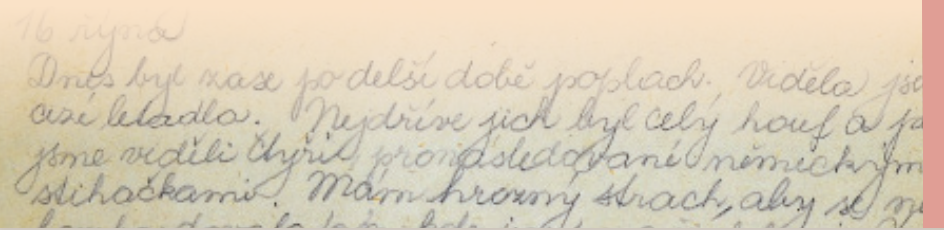 16 října
Dnes byl zase po delší době poplach. Viděla
cizí letadla. Nejdříve jich byl celý houf a
jsme viděli čtyři, pronásledované německým
stihačkami. Mám hrozný strach, aby se